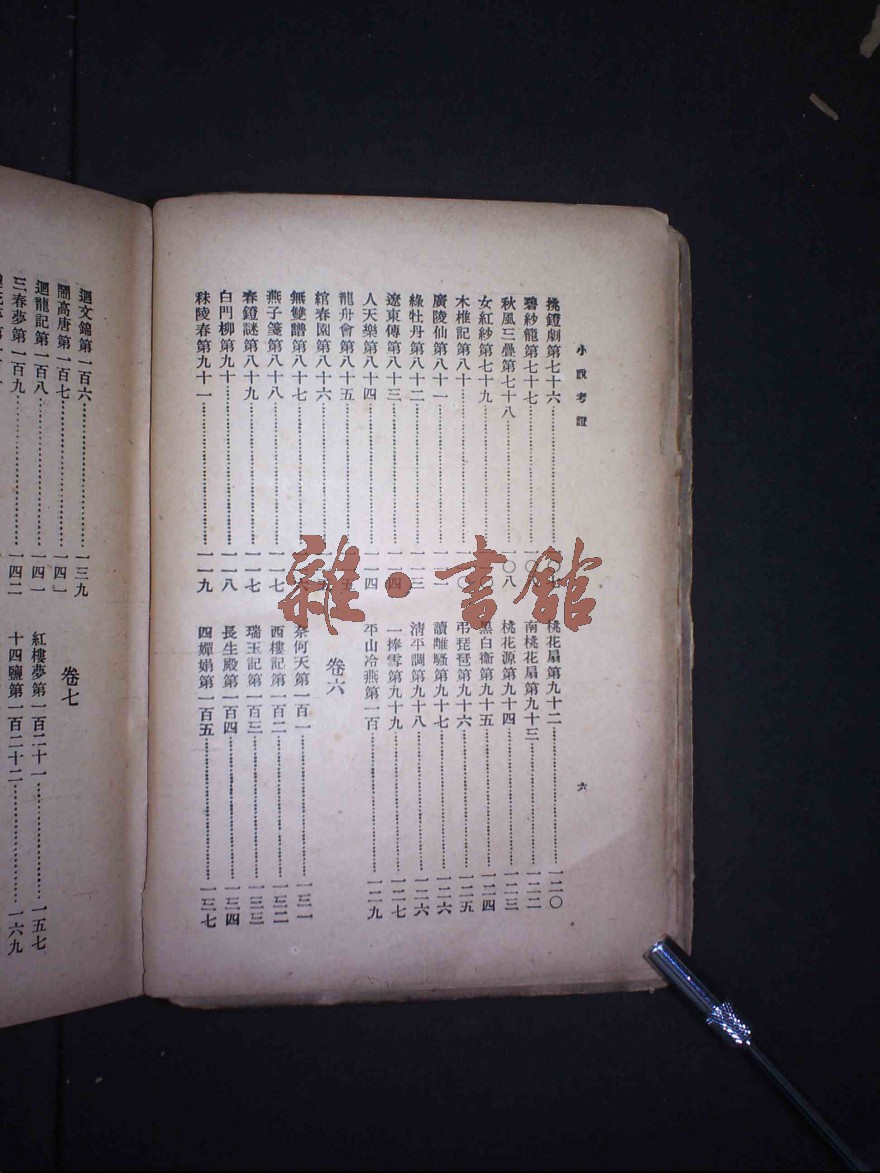 小說考證
六
挑鐙劇第七十六
碧紗籠第七十七
秋風三疊第七十八……一〇八
女紅紗第七十九
木椎記第八十
廣陵仙第八十一……一一一
綠牡丹第八十二……一一三
遼東傳第八十三……一一四
人天樂第八十四……一一四
龍舟會第八十五
綰春園第八十六
無雙譜第八十七
燕子箋第八十八……一一七
春鐙謎第八十九……一一七
白門柳第九十……一一八
秣陵春第九十一……一一九
桃花扇第九十二……一二〇
南桃花扇第九十三……一二二
桃花源第九十四……一二三
黑白衛第九十五……一二四
弔琵琶第九十六……一二五
讀離騷第九十七……一二六
清平調第九十八……一二六
一捧雪第九十九……一二七
平山冷燕第一百……一二九
卷六
奈何天第一百一……一三一
西樓記第一百二……一三二
瑞玉記第一百三……一三三
長生殿第一百四……一三四
四嬋娟第一百五……一三七
迴文錦第一百六……一三九
鬧高唐第一百七……一四一
迴龍記第一百八……一四一
三春夢第一百九……一四二
卷七
紅樓夢第一百二十一……一五七
十四鹽第一百二十二……一六九
雜·書館